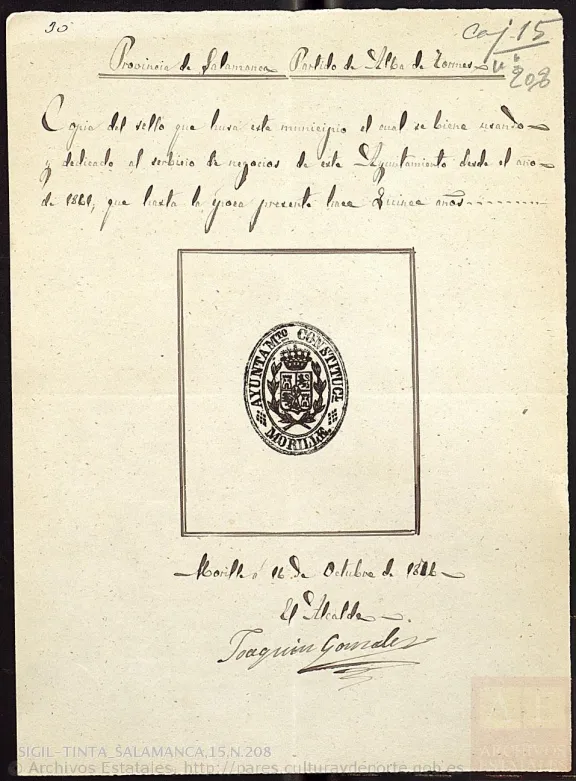 30
Caj. 15
nº 208
Provincia de Salamanca Partido de Alba de Tormes
Copia del sello que husa este municipio el cual se biene usando
y dedicado al serbisio de negocios de este Ayuntamiento desde el año
de 1861, que hasta la epoca presente hace Quince años
AYUNTAMTO CONSTITUCL
MORILLE
Morille 16 de Octubre de 1876
El Alcalde
Joaquin Gonzalez
SIGIL-TINTA_SALAMANCA,15,N.208
© Archivos Estatales, http://pares.culturaydeporte.gob.es
ARCHIVOS
ESTATALES